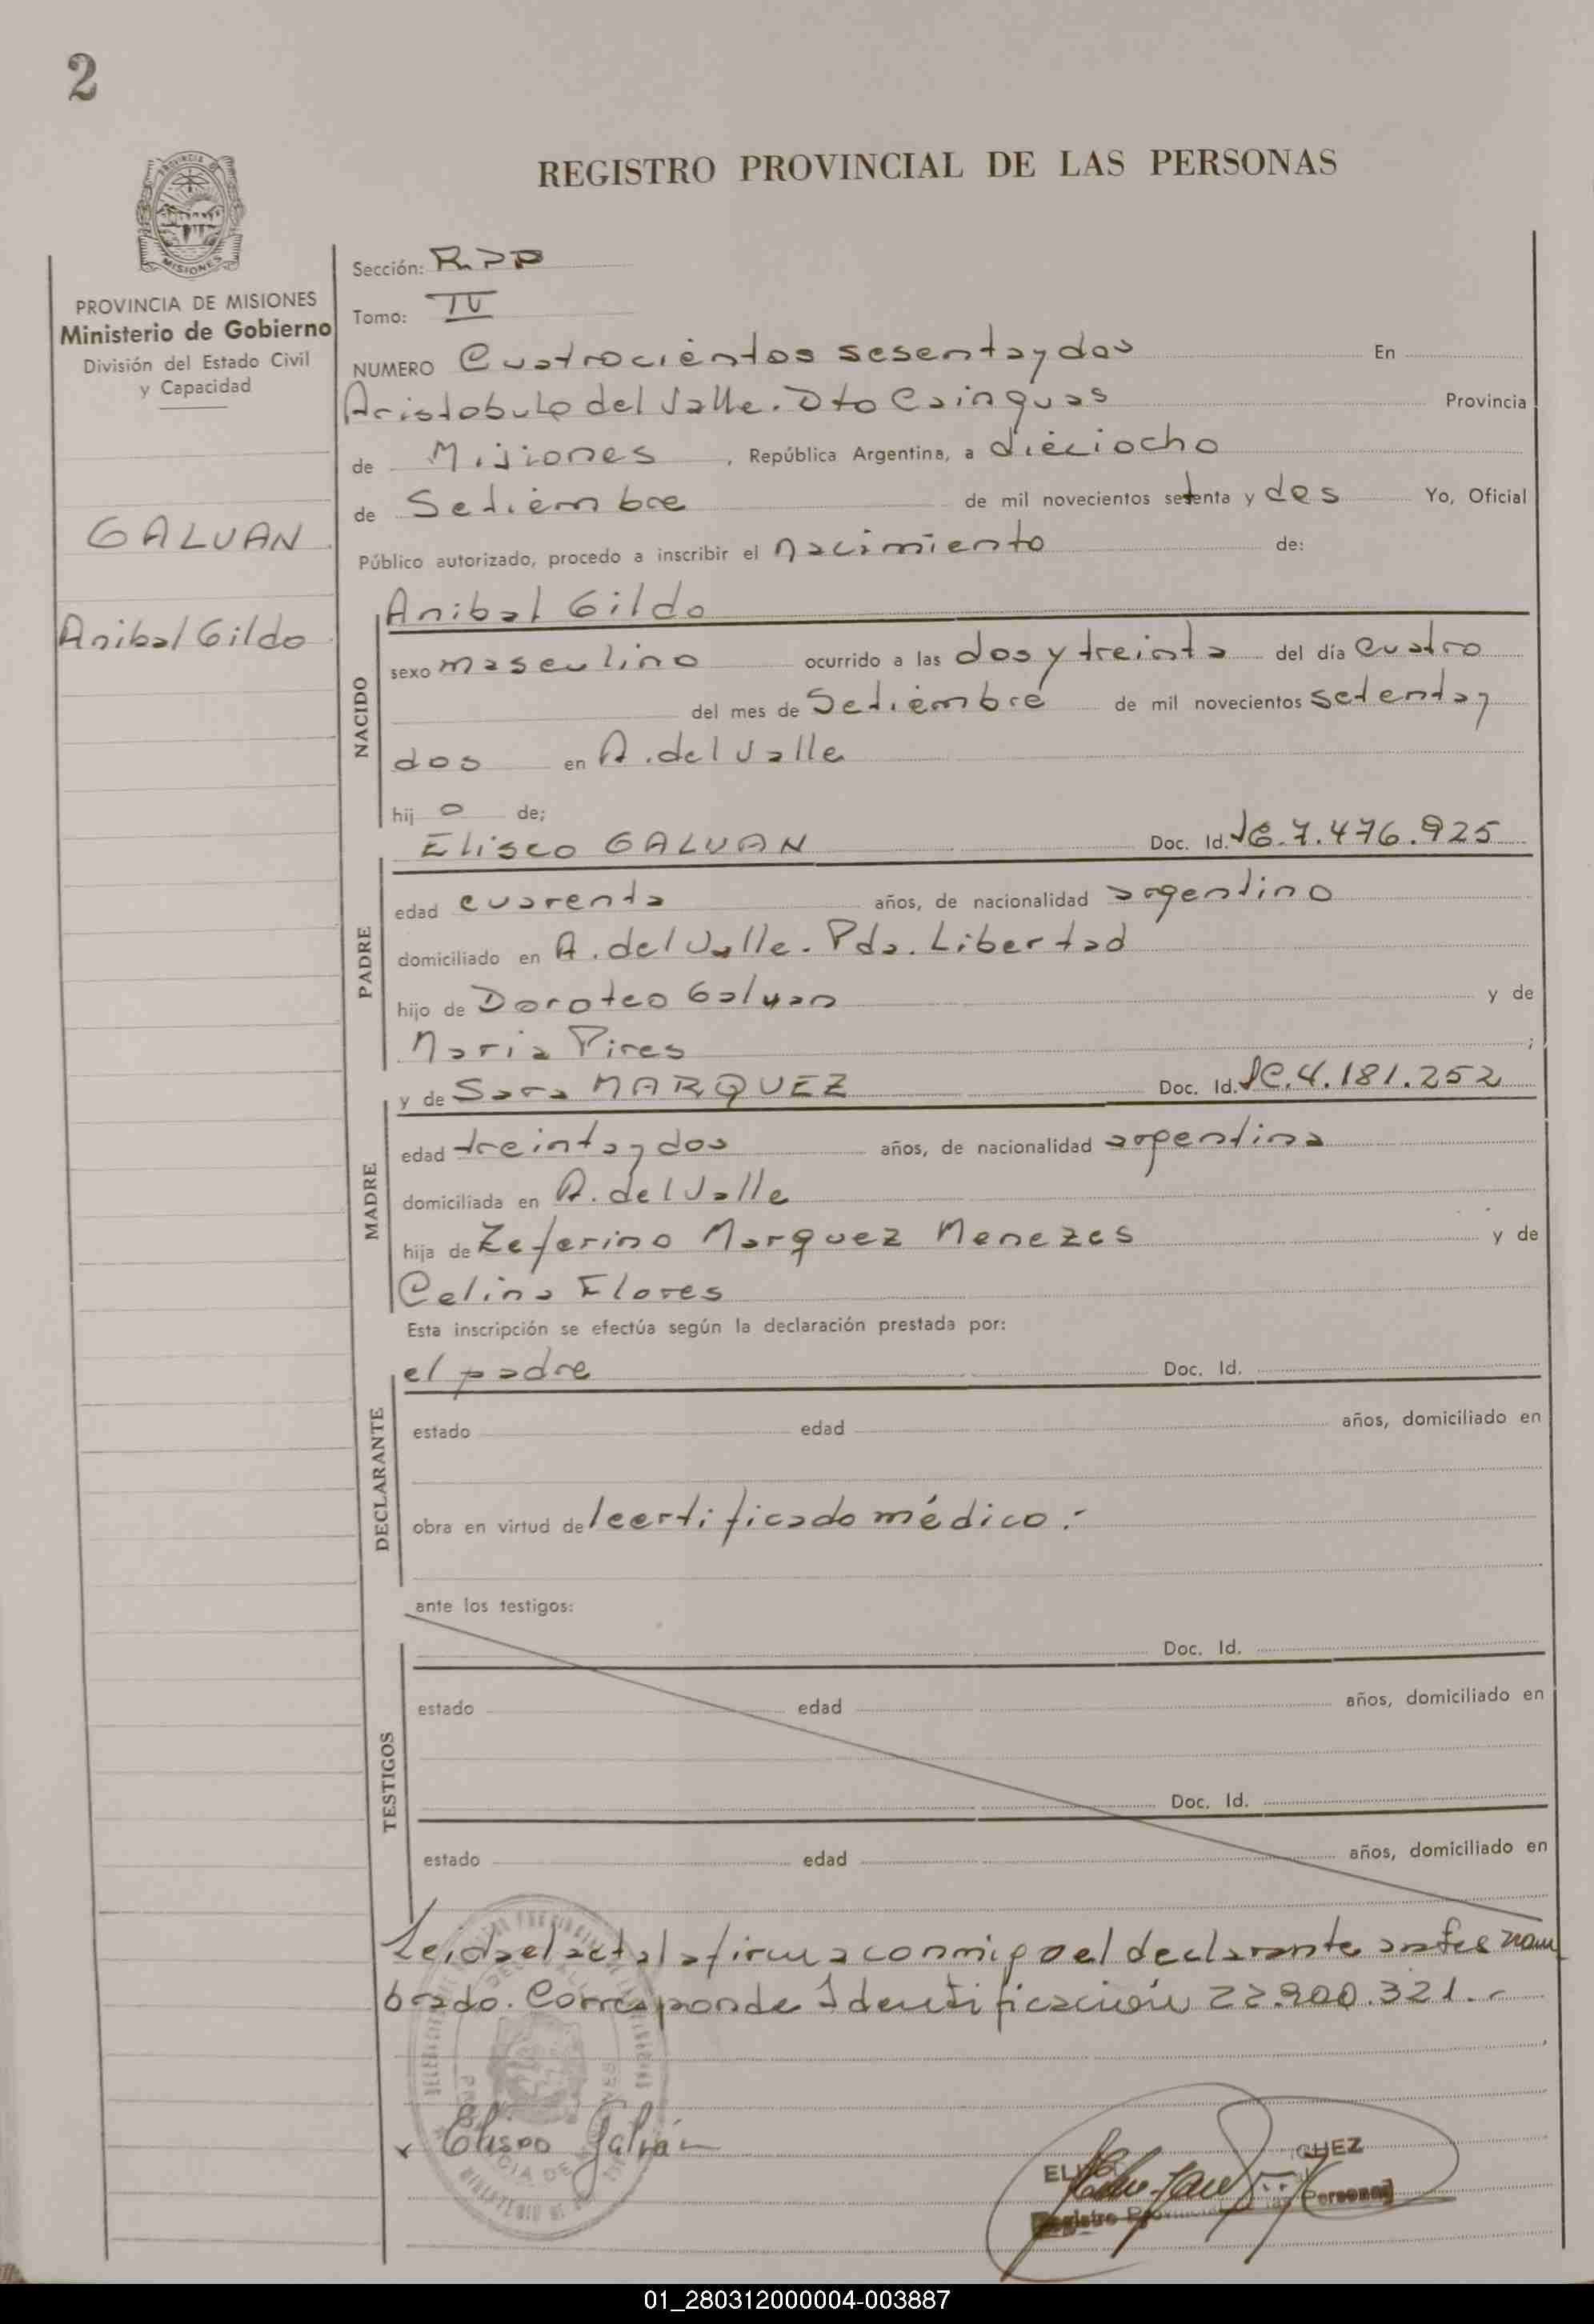 2
REGISTRO PROVINCIAL DE LAS PERSONAS
PROVINCIA DE MISIONES
Ministerio de Gobierno
División del Estado Civil
y Capacidad
GALVAN
Anibal Gildo
Sección: R.P.P
Tomo: IV
NUMERO Cuatrocientos sesenta y dos En
Aristobulo del Valle. Dto Cainguas Provincia
de Misiones, República Argentina, a dieciocho
de Setiembre de mil novecientos setenta y dos Yo, Oficial
Público autorizado, procedo a inscribir el nacimiento de:
Anibal Gildo
NACIDO
sexo masculino ocurrido a las dos y treinta del día cuatro
del mes de Setiembre de mil novecientos setenta y
dos en A. del Valle
hij o de;
Eliseo GALVAN Doc. Id. 7.476.925
PADRE
edad cuarenta años, de nacionalidad argentino
domiciliado en A. del Valle. Pda. Libertad
hijo de Doroteo Galvan y de
Maria Pires ;
y de Sara MARQUEZ Doc. Id. LC. 4.181.252
MADRE
edad treinta y dos años, de nacionalidad argentina
domiciliada en A. del Valle
hija de Zeferino Marquez Menezes y de
Celina Flores
Esta inscripción se efectúa según la declaración prestada por:
el padre Doc. Id.
DECLARANTE
estado edad años, domiciliado en
obra en virtud de certificado médico.-
ante los testigos:
Doc. Id.
TESTIGOS
estado edad años, domiciliado en
Doc. Id.
estado edad años, domiciliado en
Leida el acta la firma conmigo el declarante antes nom
brado. Corresponde Identificación 22.900.321.-
x Eliseo Galván
01_280312000004-003887